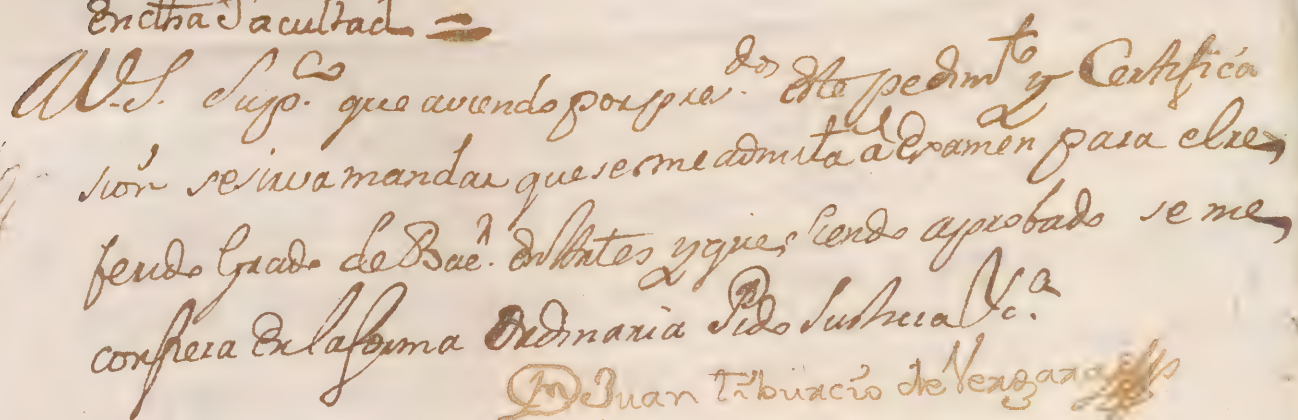 En dha Facultad =
A V.S. Sup.co que aviendo por pres.dos este pedim.to y Certifica
sion se sirva mandar que se me admita al Examen para el re
ferido Grado de Bac.r en Artes y que siendo aprobado se me
confiera En la forma Ordinaria Pido Justicia &c.a
D Juan Tiburcio de Vergara